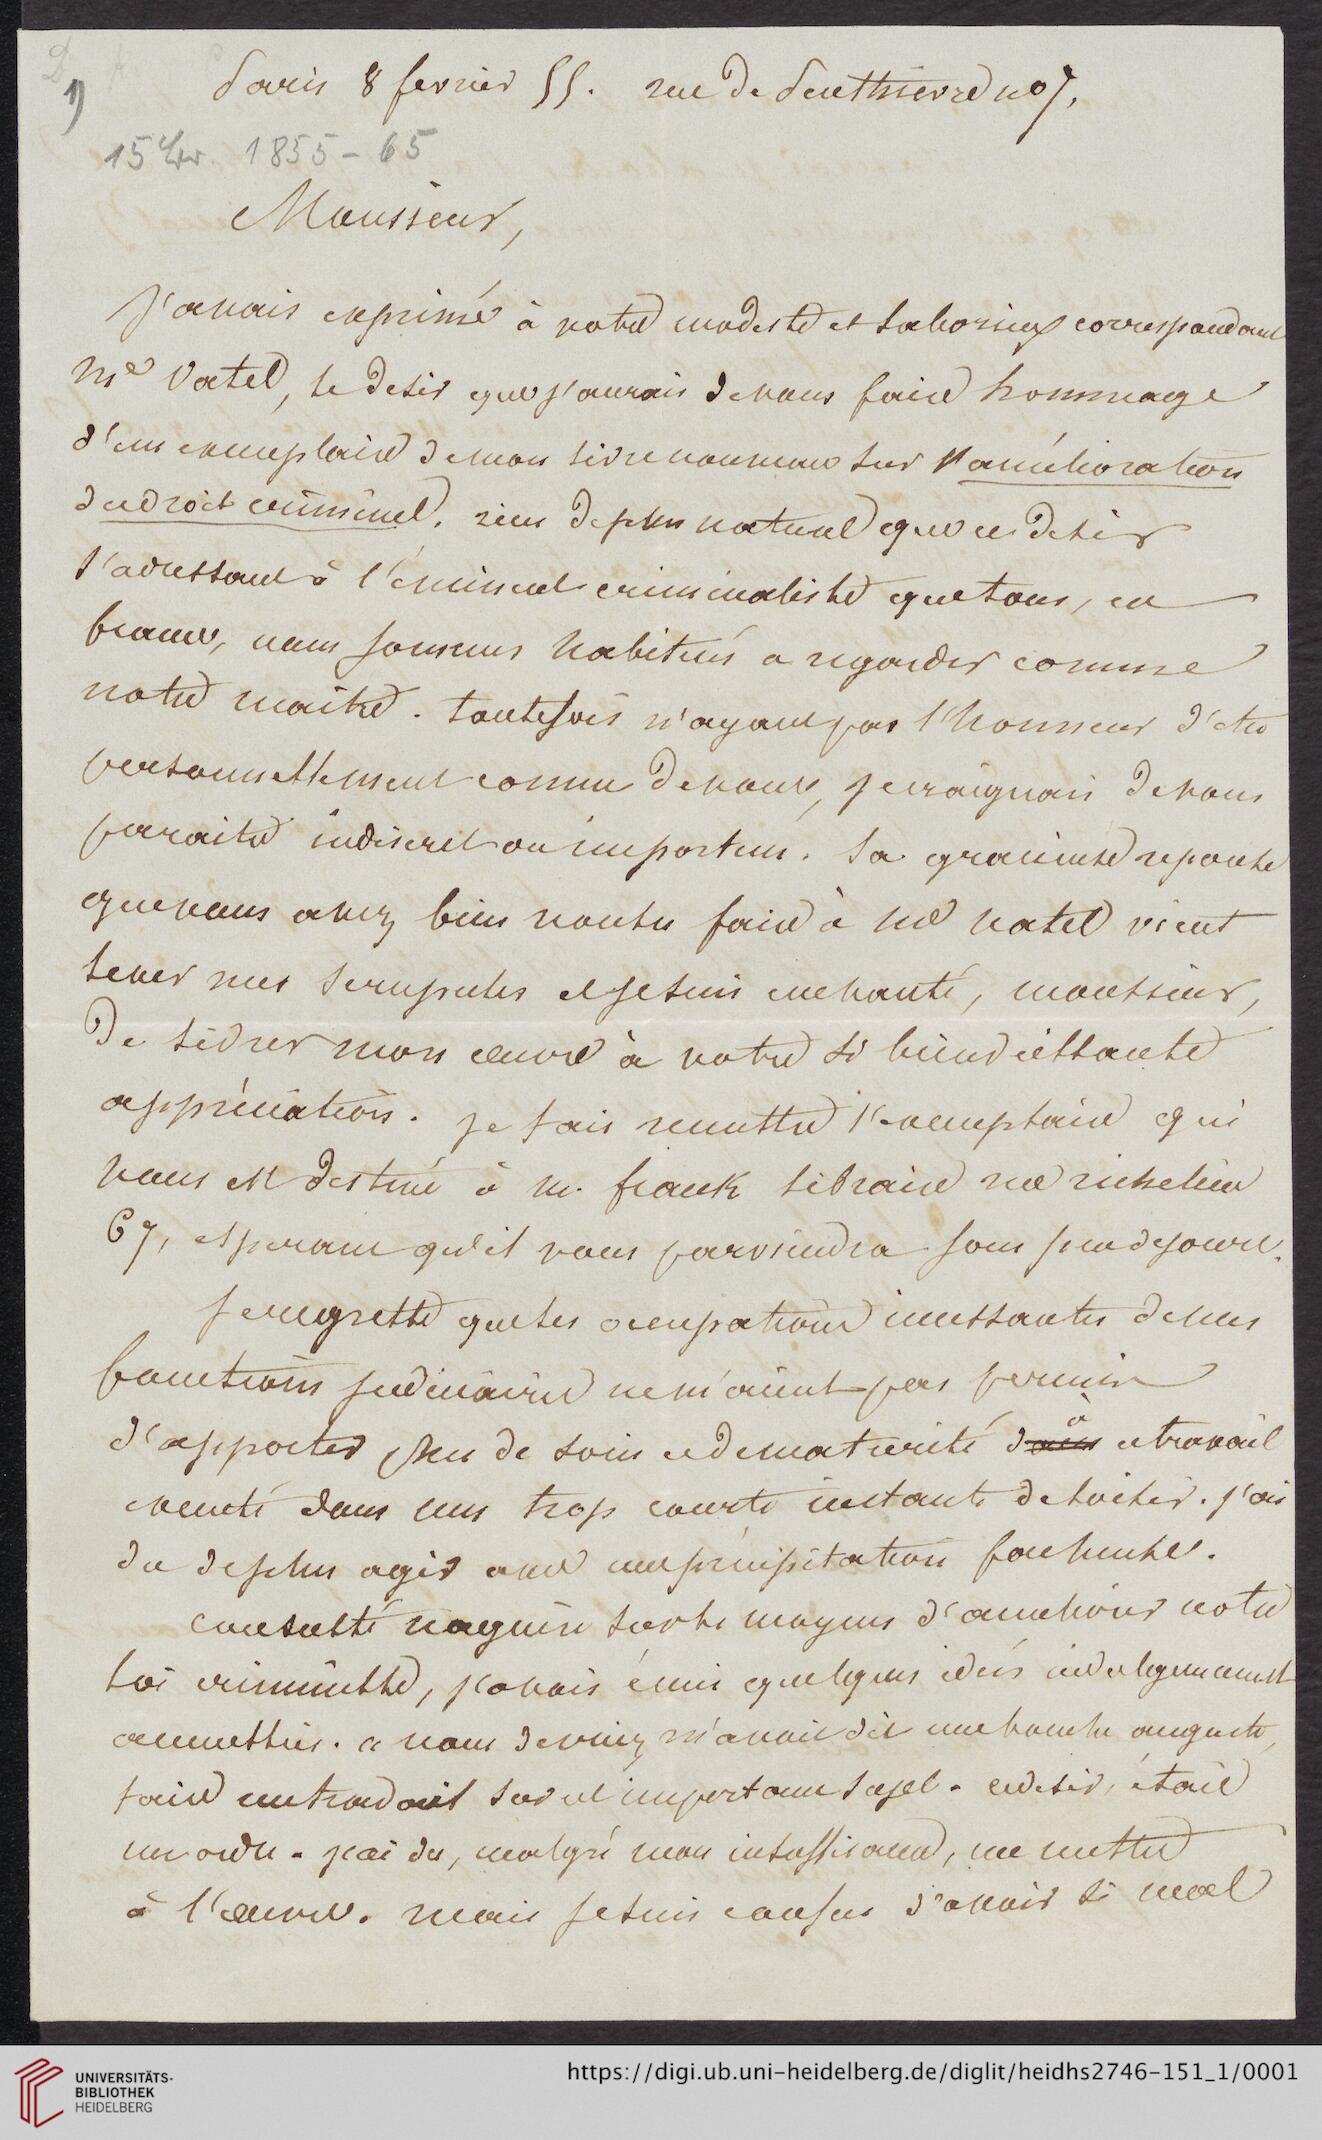 1)
Paris 8 fevrier 55. rue de Penthievre no 7.
15 Br. 1855-65
Monsieur,
J'avais exprimé à votre modeste et laborieux correspondant
Mr Vatel, le desir que j'aurais de vous faire hommage
d'un exemplaire de mon livre nouveau sur l'amélioration
du droit criminel. rien de plus naturel que ce desir
s'adressant à l'éminent criminaliste que tous, en
france, nous sommes habitués a regarder comme
notre maitre. toutefois n'ayant pas l'honneur d'etre
personnellement connu de vous, je craignais de vous
paraitre indiscret ou importun. la gracieuse reponse
que vous avez bien voulu faire à Mr Vatel vient
lever mes scrupules et je suis enchanté, monsieur,
de livrer mon œuvre à votre si bienveillante
appréciation. je fais remettre l'exemplaire qui
vous est destiné à m. frank libraire rue richelieu
67, esperant qu'il vous parviendra sous peu de jours.
Je regrette que les occupations incessantes de mes
fonctions judiciaires ne m'aient pas permis
d'apporter plus de soin et de maturité dans à ce travail
executé dans mes trop courts instants de loisir. j'ai
du de plus agir avec une précipitation facheuse.
consulté naguère sur les moyens d'améliorer notre
loi criminelle, j'avais émis quelques idées indulgemment
accueillies. vous devriez, m'avait dit une bouche auguste,
faire un travail sur cet important sujet. ce desir, était
un ordre. j'ai du, malgré mon insuffisance, me mettre
à l'œuvre. mais je suis confus d'avoir si mal
UNIVERSITÄTS-
BIBLIOTHEK
HEIDELBERG
https://digi.ub.uni-heidelberg.de/diglit/heidhs2746-151_1/0001